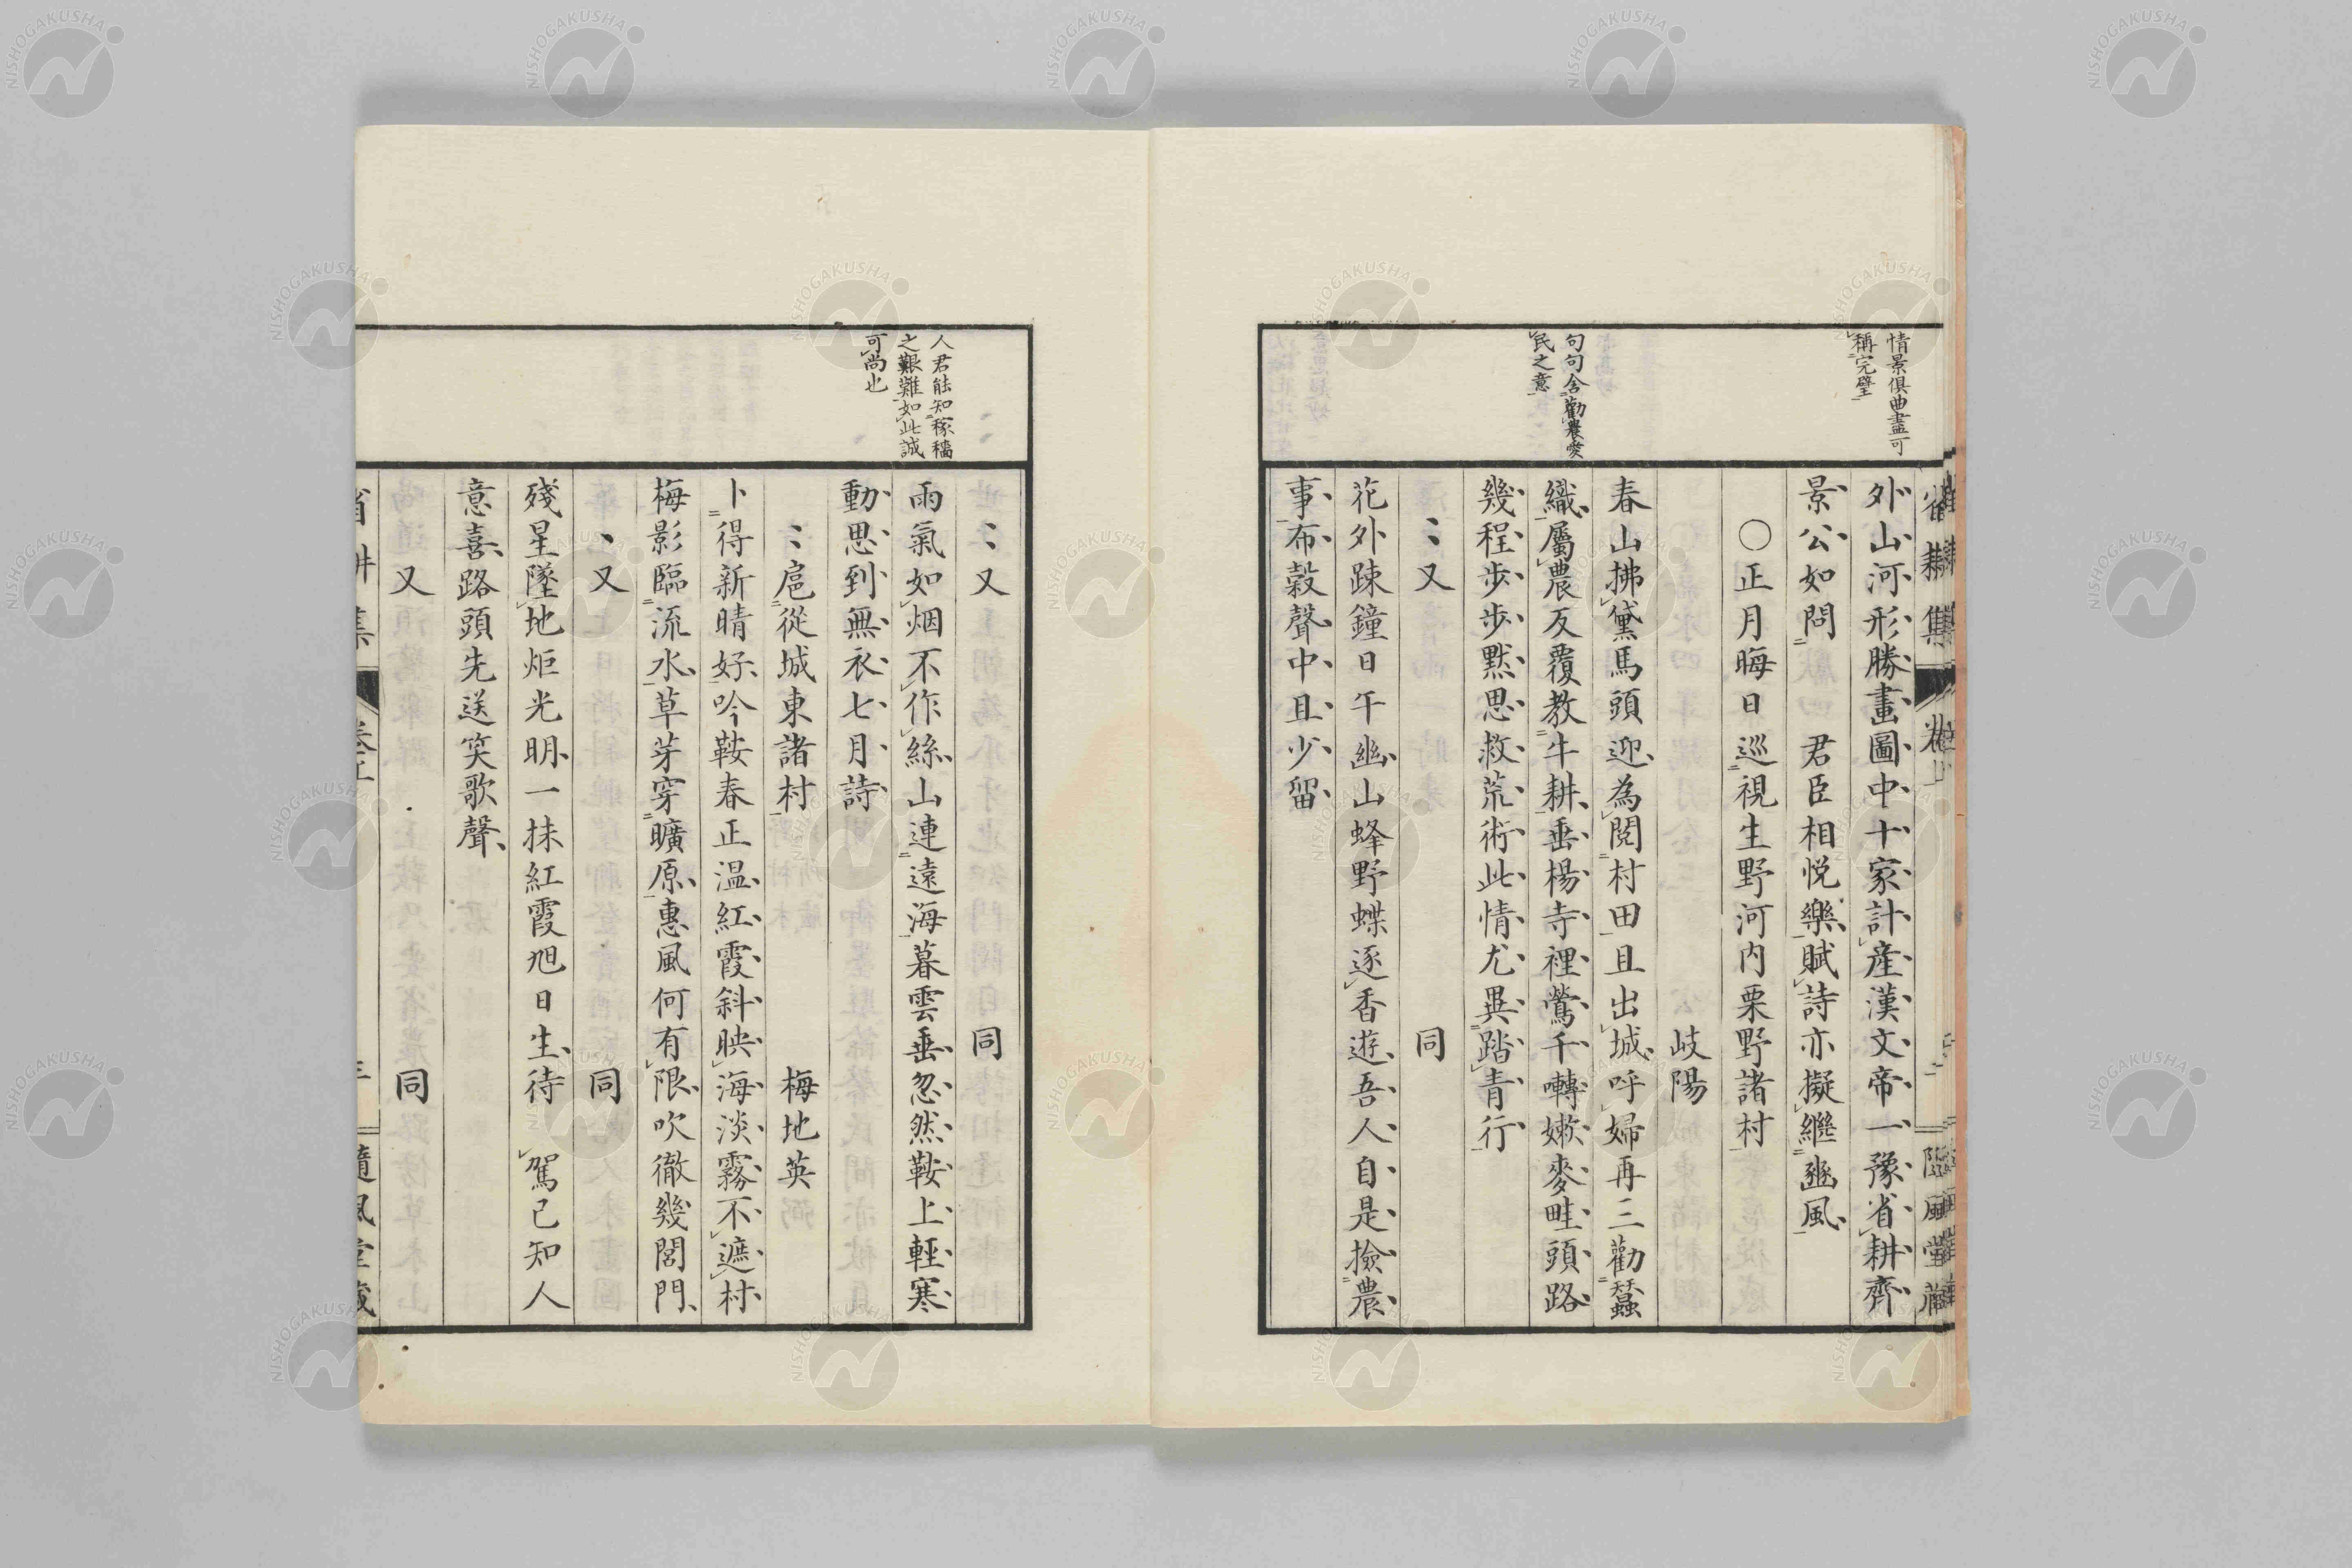 情景俱曲盡可
稱完璧
句句含勸農愛
民之意
省耕集
外山河形勝畫圖中十家計產漢文帝一豫省耕齊
景公如問 君臣相悅樂賦詩亦擬繼豳風
〇正月晦日巡視生野河内栗野諸村
岐陽
春山拂黛馬頭迎為閱村田且出城呼婦再三勸蠶
織屬農反覆教牛耕垂楊寺裡鶯千囀嫩麥畦頭路
幾程步步默思救荒術此情尤異踏青行
〻又 同
花外踈鐘日午幽山蜂野蝶逐香遊吾人自是撿農
事布穀聲中且少留
人君能知稼穡
之艱難如此誠
可尚也
〻又 同
雨氣如烟不作絲山連遠海暮雲垂忽然鞍上輕寒
動思到無衣七月詩
〻扈從城東諸村 梅地英
卜得新晴好吟鞍春正温紅霞斜映海淡霧不遮村
梅影臨流水草芽穿曠原惠風何有限吹徹幾閭門
〻又 同
殘星墜地炬光明一抹紅霞旭日生待 駕已知人
意喜路頭先送笑歌聲
又 同
省耕集 隨風堂藏
NISHOGAKUSHA